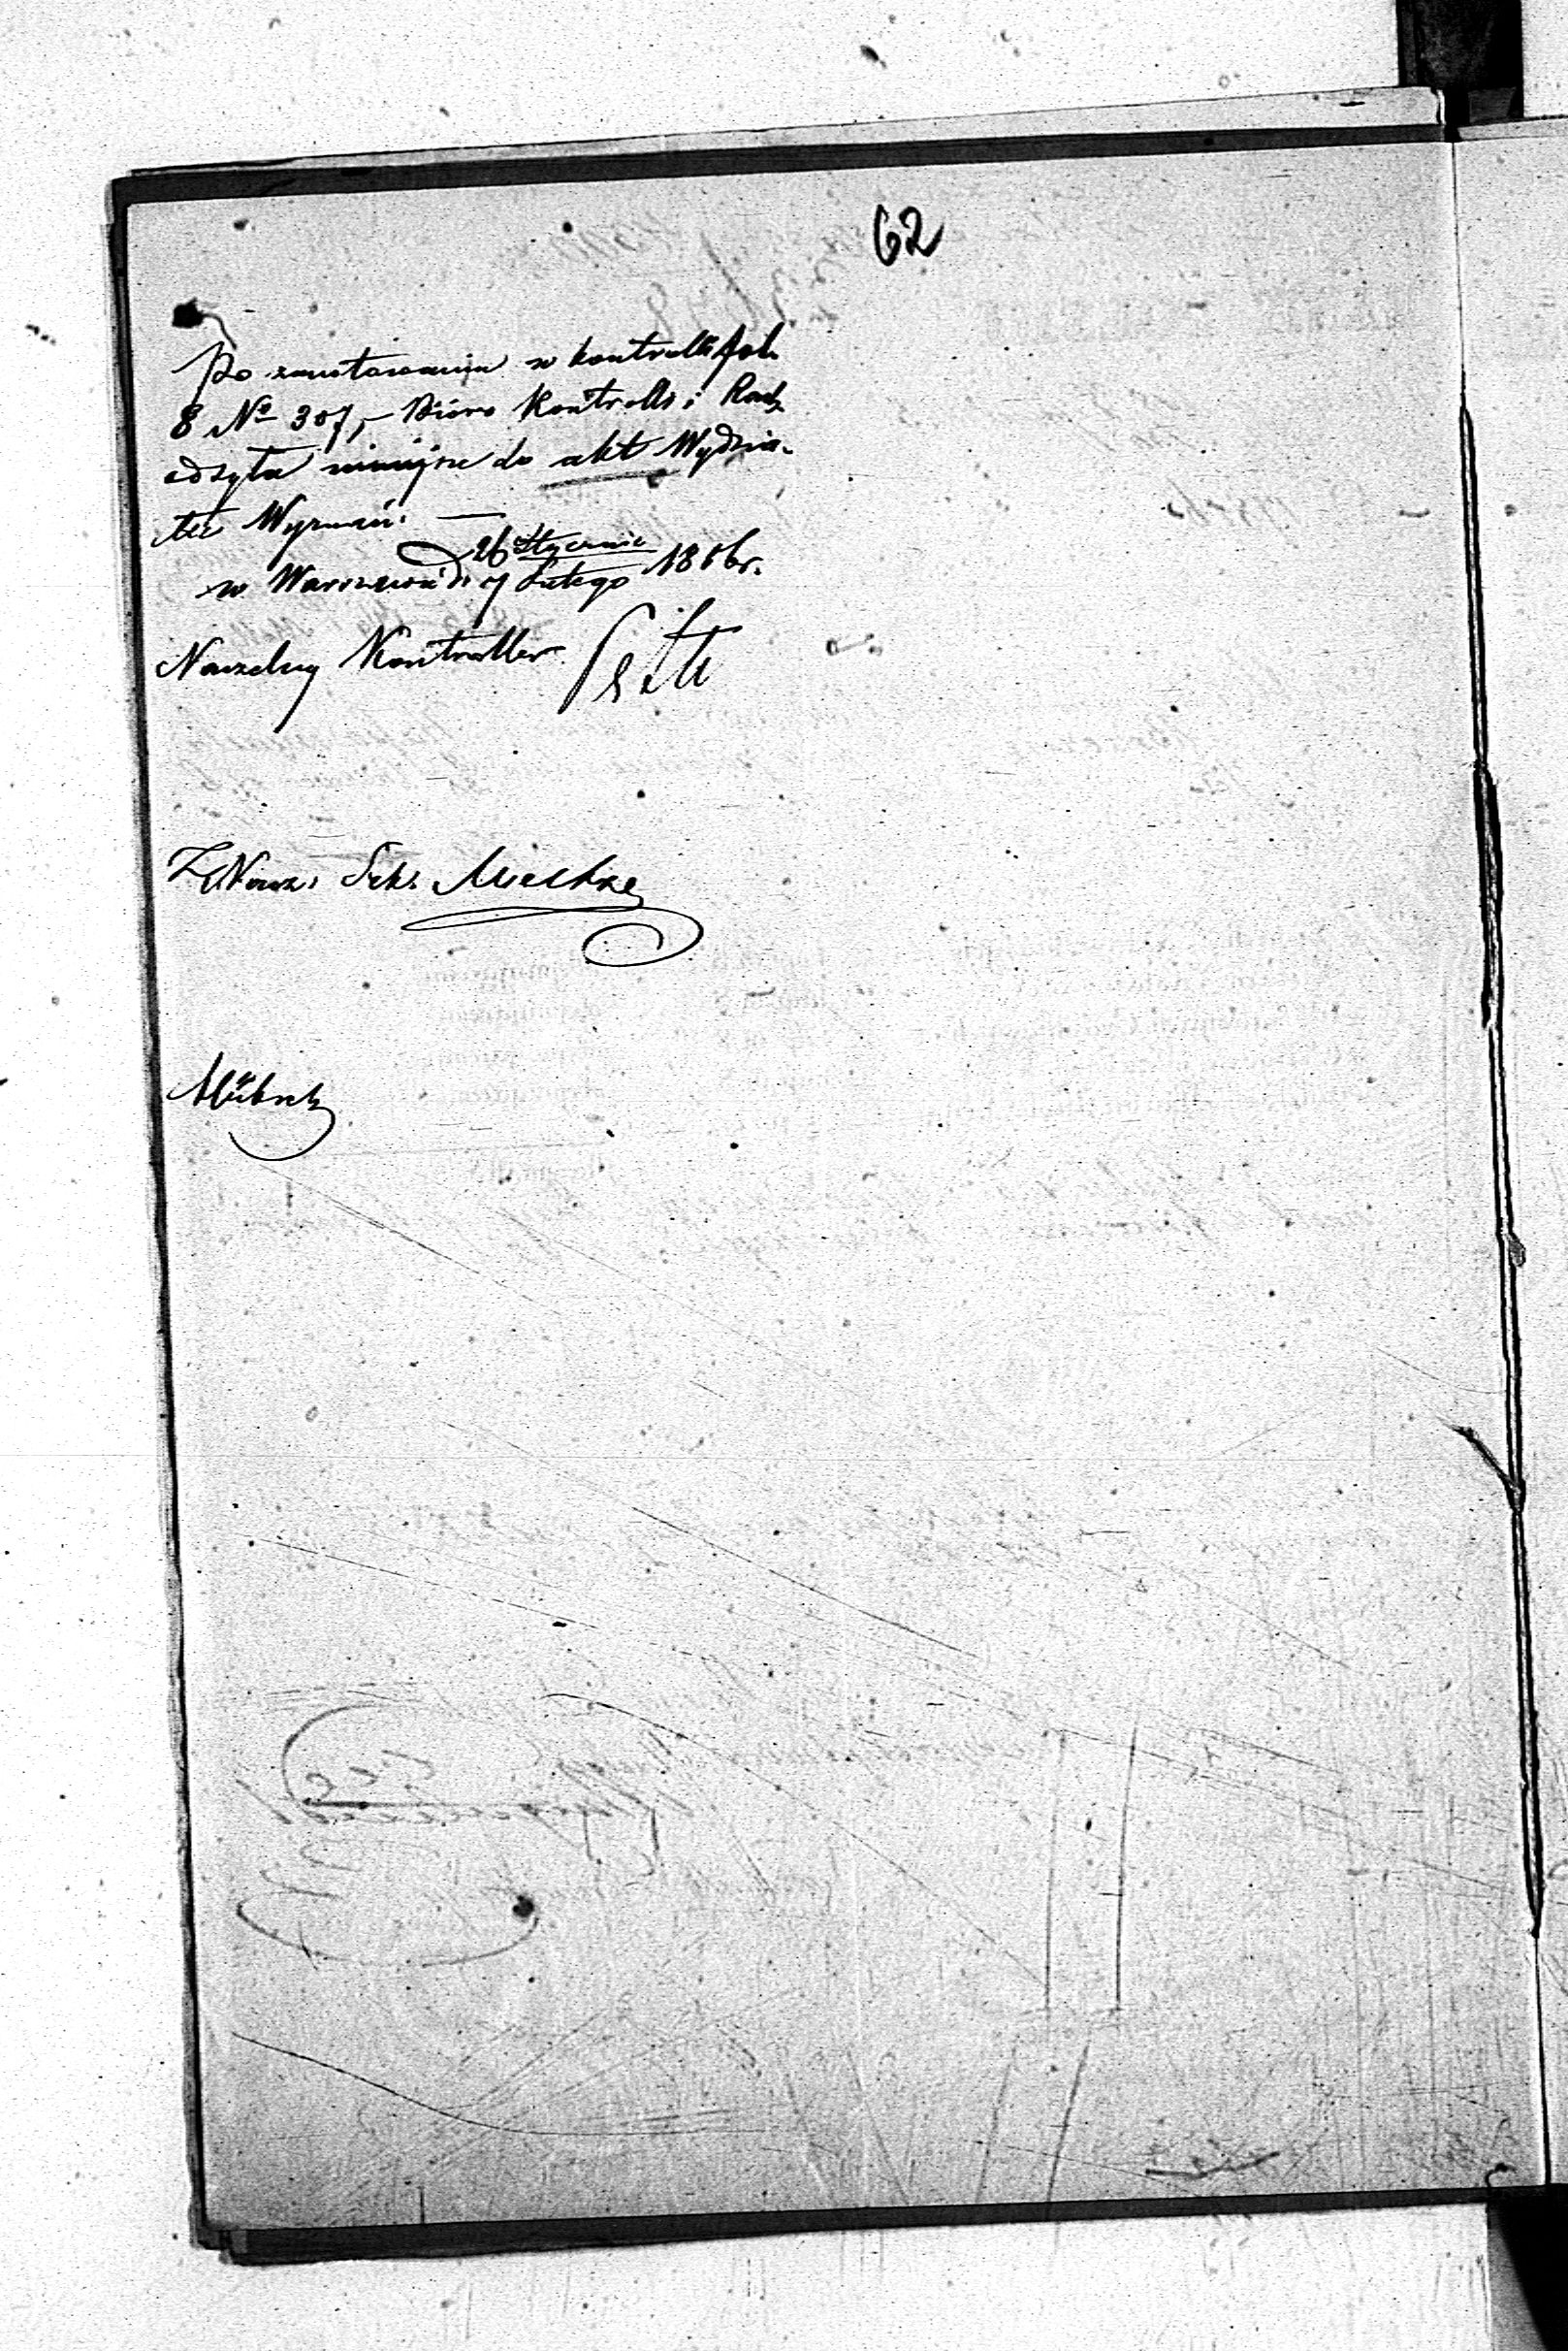 62
Po zanotowaniu w kontrolli fol.
8 № 307, – Biuro Kontrolli i Rach.
odsyła niniejsze do akt Wydzia-
łu Wyznań. —
w Warszawie d. 26 Stycznia
7 Lutego 1866 r.
Naczelny Kontroller
Z. Nacz. Sek.